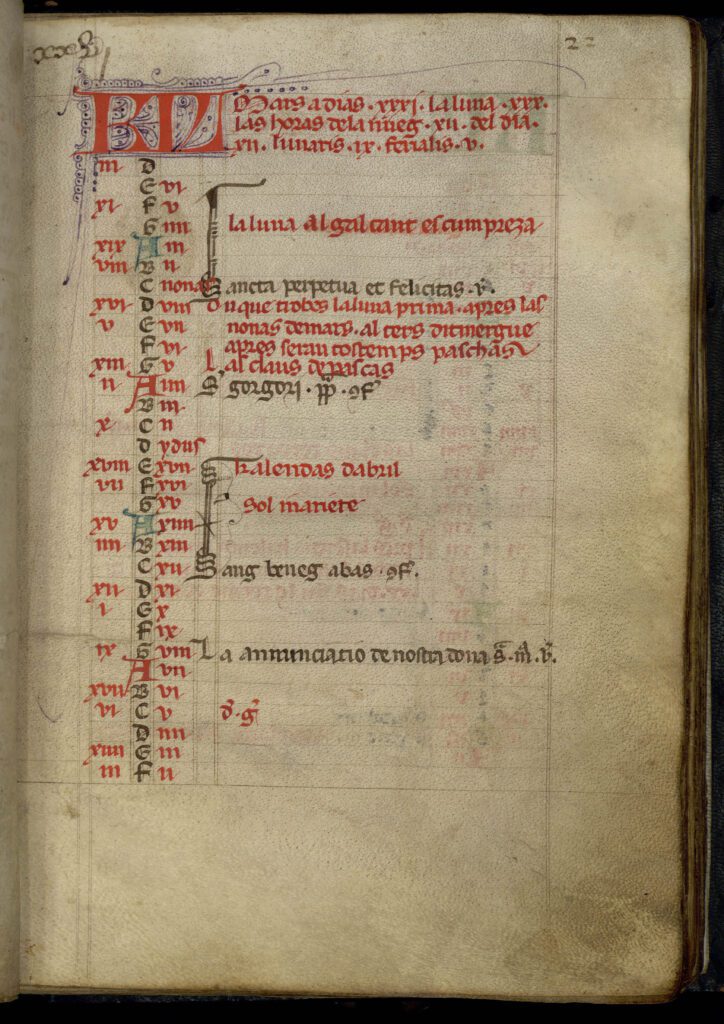 xxxv
22
KL Mars a dias · xxxi · la luna · xxx ·
las horas de la nueg · xii · del dia ·
xii · lunaris ix · ferialis · v ·
iii D
E vi
xi F v
G iiii la luna al gal cant es cumpreza
xix A iii
viii B ii
C nonas Sancta perpetua et felicitas · v ·
xvi D viii On que trobes la luna prima · apres las
v E vii nonas de mars · al ters dimergue
F vi apres seran tostemps paschas
xiii G v Las claus de pascas
ii A iiii S gorgori · pp · ɔf
B iii
x C ii
D ydus
xviii E xvii Kalendas dabril
vii F xvi
G xv Sol mariete
xv A xiiii
iiii B xiii
C xii Sang beneg abas · ɔf ·
xii D xi
i E x
F ix
ix G viii La annunciatio de nostra dona
A vii
xvii B vi
vi C v d · g
D iiii
xiiii E iii
iii F ii